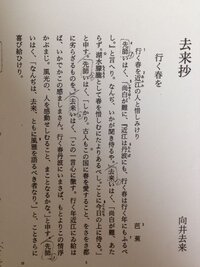 去来抄
向井去来
行く春を
行く春を近江の人と惜しみけり
芭蕉
先師いはく、「尚白が難に、『近江は丹波にも、行く春は行く年にもふるべ
し。』と言へり。なんぢ、いかが聞き侍るや。」去来いはく、「尚白が難あたら
ず。湖水朦朧として春を惜しむにたよりあるべし。ことに今日の上に侍る。」
と申す。先師いはく、「しかり。古人もこの国に春を愛すること、をさをさ都
に劣らざるものを。」去来いはく、「この一言心に徹す。行く年近江にゐ給は
ば、いかでかこの感ましまさん。行く春丹波にいまさば、もとよりこの情浮
かぶまじ。風光の、人を感動せしむること、まことなるかな。」と申す。先師
いはく、「なんぢは、去来、ともに風雅を語るべき者なり。」と、ことさらに
喜び給ひけり。